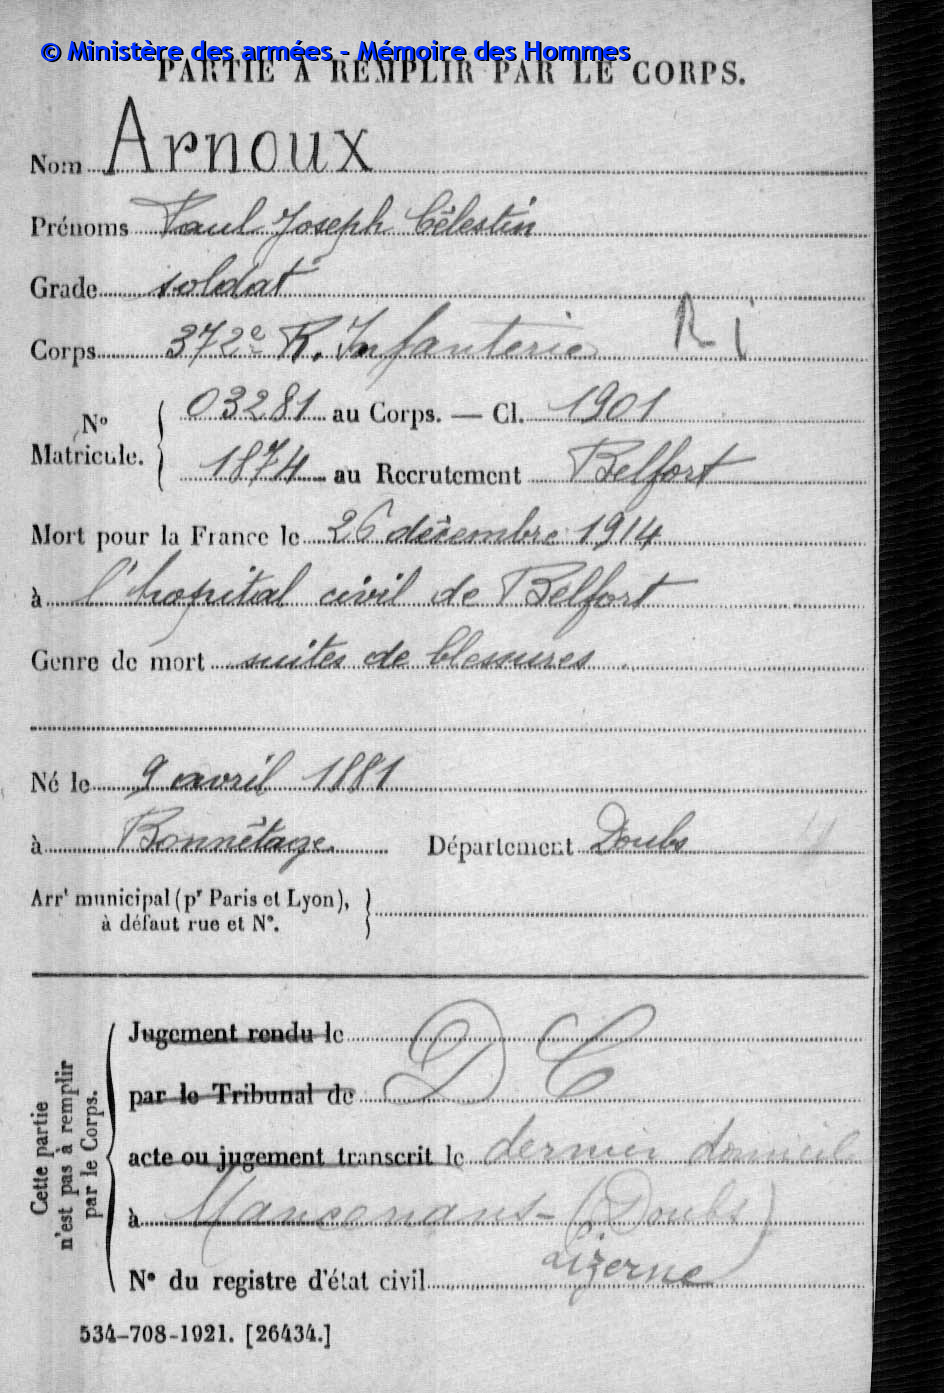 © Ministère des armées - Mémoire des Hommes
PARTIE À REMPLIR PAR LE CORPS.
Nom Arnoux
Prénoms Paul Joseph Célestin
Grade soldat
Corps 372e R. Infanterie RI
03281 au Corps. — Cl. 1901
N° Matricule.
1874 au Recrutement Belfort
Mort pour la France le 26 décembre 1914
à l'hopital civil de Belfort
Genre de mort suites de blessures
Né le 9 avril 1881
à Bonnétage Département Doubs
Arrt municipal (pr Paris et Lyon),
à défaut rue et N°.
Cette partie
n'est pas à remplir
par le Corps.
Jugement rendu le
par le Tribunal de DC
acte ou jugement transcrit le dernier domicile
à Mancenans- (Doubs)
Lizerne
N° du registre d'état civil
534-708-1921. [26434.]